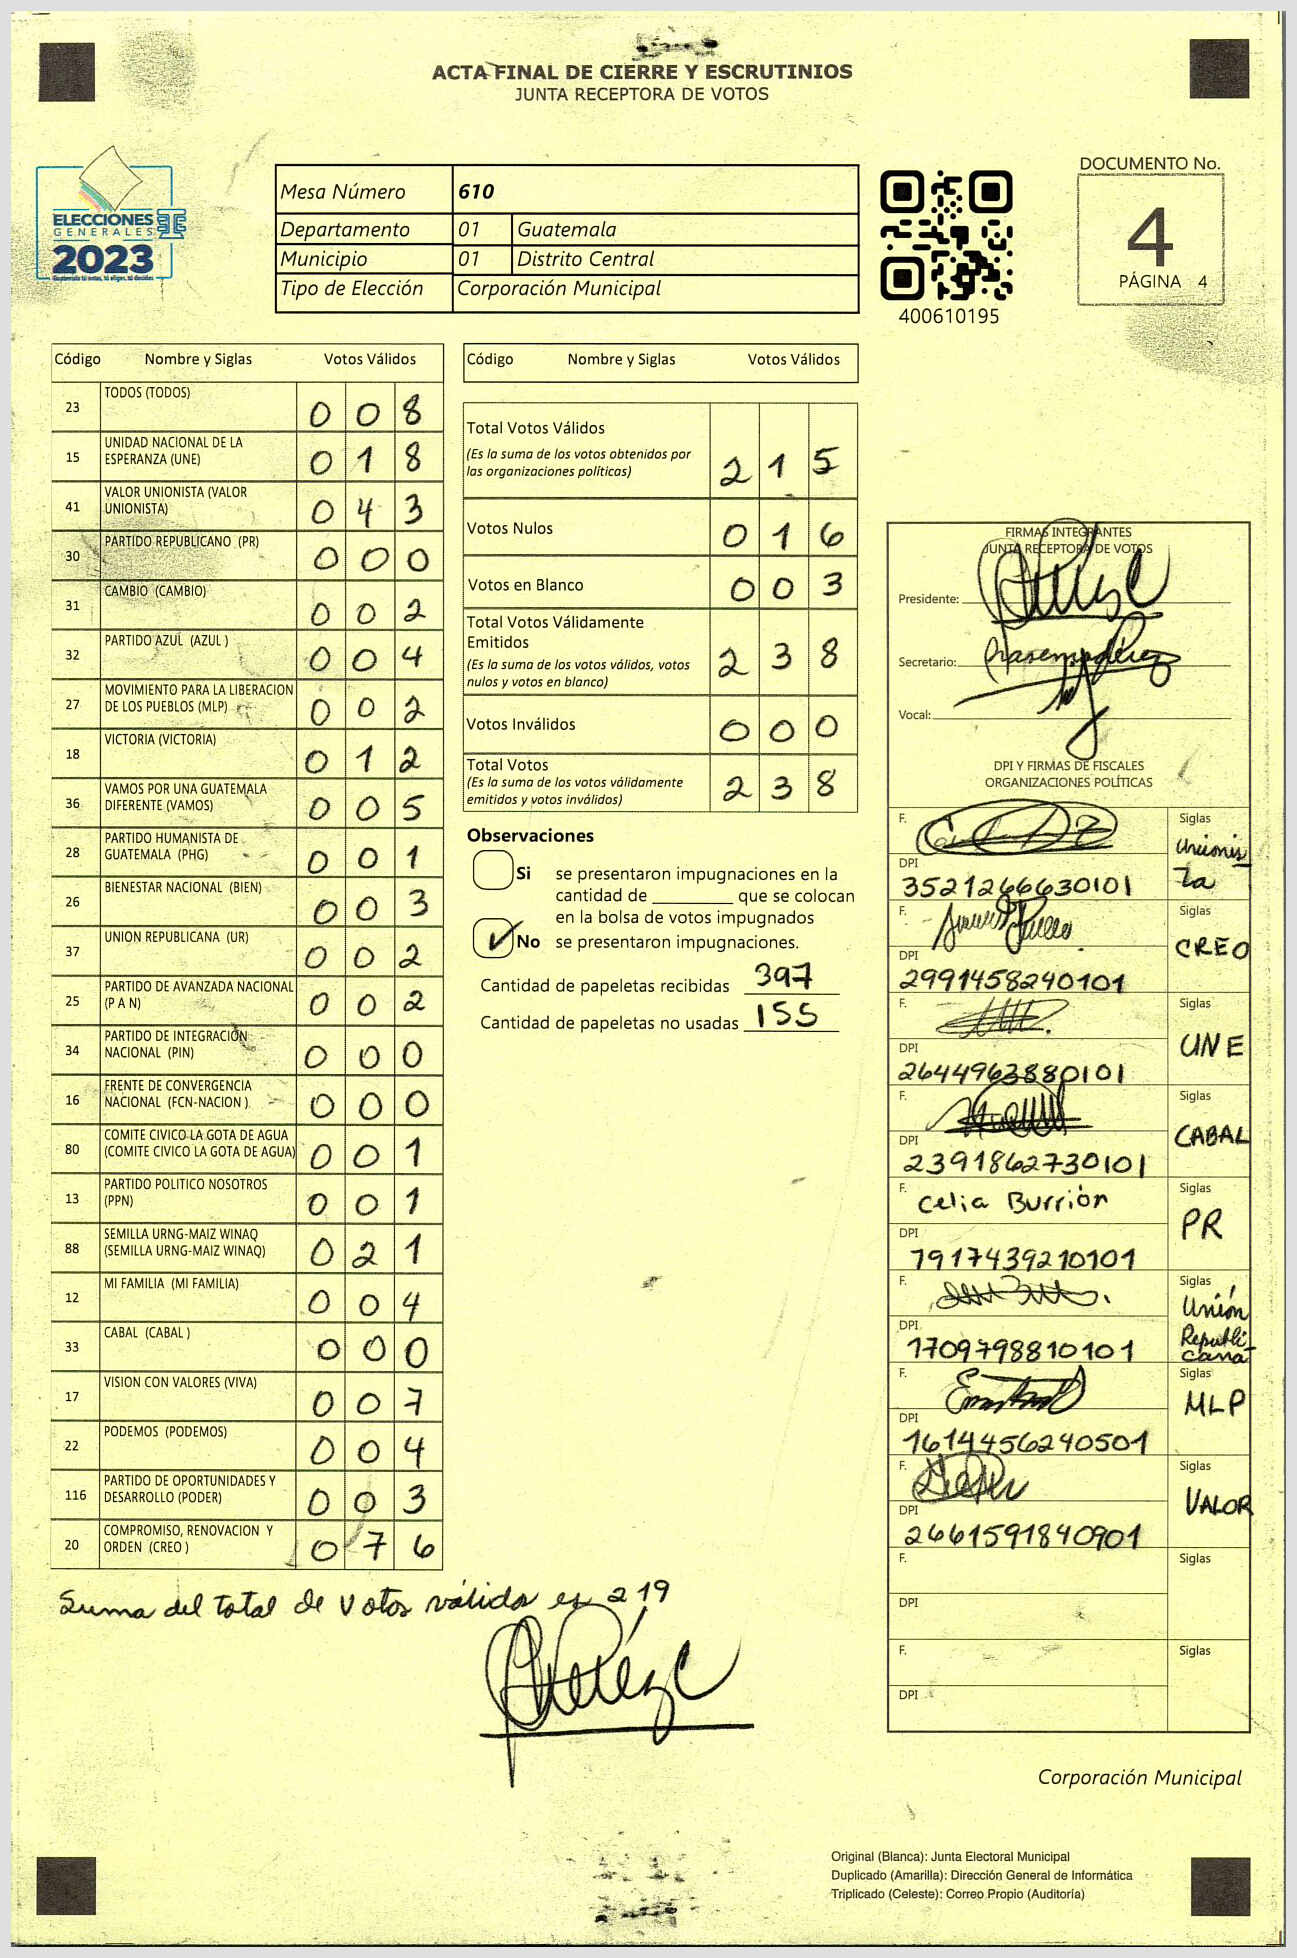 ACTA FINAL DE CIERRE Y ESCRUTINIOS
JUNTA RECEPTORA DE VOTOS
ELECCIONES
GENERALES
2023
Guatemala tú votas, tú eliges, tú decides
Mesa Número 610
Departamento 01 Guatemala
Municipio 01 Distrito Central
Tipo de Elección Corporación Municipal
400610195
DOCUMENTO No.
4
PÁGINA 4
Código Nombre y Siglas Votos Válidos
23 TODOS (TODOS) 0 0 8
15 UNIDAD NACIONAL DE LA ESPERANZA (UNE) 0 1 8
41 VALOR UNIONISTA (VALOR UNIONISTA) 0 4 3
30 PARTIDO REPUBLICANO (PR) 0 0 0
31 CAMBIO (CAMBIO) 0 0 2
32 PARTIDO AZUL (AZUL ) 0 0 4
27 MOVIMIENTO PARA LA LIBERACION DE LOS PUEBLOS (MLP) 0 0 2
18 VICTORIA (VICTORIA) 0 1 2
36 VAMOS POR UNA GUATEMALA DIFERENTE (VAMOS) 0 0 5
28 PARTIDO HUMANISTA DE GUATEMALA (PHG) 0 0 1
26 BIENESTAR NACIONAL (BIEN) 0 0 3
37 UNION REPUBLICANA (UR) 0 0 2
25 PARTIDO DE AVANZADA NACIONAL (P A N) 0 0 2
34 PARTIDO DE INTEGRACIÓN NACIONAL (PIN) 0 0 0
16 FRENTE DE CONVERGENCIA NACIONAL (FCN-NACION ) 0 0 0
80 COMITE CIVICO LA GOTA DE AGUA (COMITE CIVICO LA GOTA DE AGUA) 0 0 1
13 PARTIDO POLITICO NOSOTROS (PPN) 0 0 1
88 SEMILLA URNG-MAIZ WINAQ (SEMILLA URNG-MAIZ WINAQ) 0 2 1
12 MI FAMILIA (MI FAMILIA) 0 0 4
33 CABAL (CABAL ) 0 0 0
17 VISION CON VALORES (VIVA) 0 0 7
22 PODEMOS (PODEMOS) 0 0 4
116 PARTIDO DE OPORTUNIDADES Y DESARROLLO (PODER) 0 0 3
20 COMPROMISO, RENOVACION Y ORDEN (CREO ) 0 7 6
Suma del total de votos válidos es 219
Código Nombre y Siglas Votos Válidos
Total Votos Válidos 2 1 5
(Es la suma de los votos obtenidos por
las organizaciones políticas)
Votos Nulos 0 1 6
Votos en Blanco 0 0 3
Total Votos Válidamente
Emitidos 2 3 8
(Es la suma de los votos válidos, votos
nulos y votos en blanco)
Votos Inválidos 0 0 0
Total Votos 2 3 8
(Es la suma de los votos válidamente
emitidos y votos inválidos)
Observaciones
Si se presentaron impugnaciones en la
cantidad de ________ que se colocan
en la bolsa de votos impugnados
No se presentaron impugnaciones.
Cantidad de papeletas recibidas 397
Cantidad de papeletas no usadas 155
FIRMAS INTEGRANTES
JUNTA RECEPTORA DE VOTOS
Presidente:
Secretario:
Vocal:
DPI Y FIRMAS DE FISCALES
ORGANIZACIONES POLÍTICAS
F. Siglas Unionista
DPI 3521266630101
F. Siglas CREO
DPI 2991458240101
F. Siglas UNE
DPI 2644963880101
F. Siglas CABAL
DPI 2391862730101
F. Celia Burrión Siglas PR
DPI 7917439210101
F. Siglas Unión Republicana
DPI 1709798810101
F. Siglas MLP
DPI 1614456240501
F. Siglas VALOR
DPI 2661591840901
F. Siglas
DPI
F. Siglas
DPI
Corporación Municipal
Original (Blanca): Junta Electoral Municipal
Duplicado (Amarilla): Dirección General de Informática
Triplicado (Celeste): Correo Propio (Auditoría)